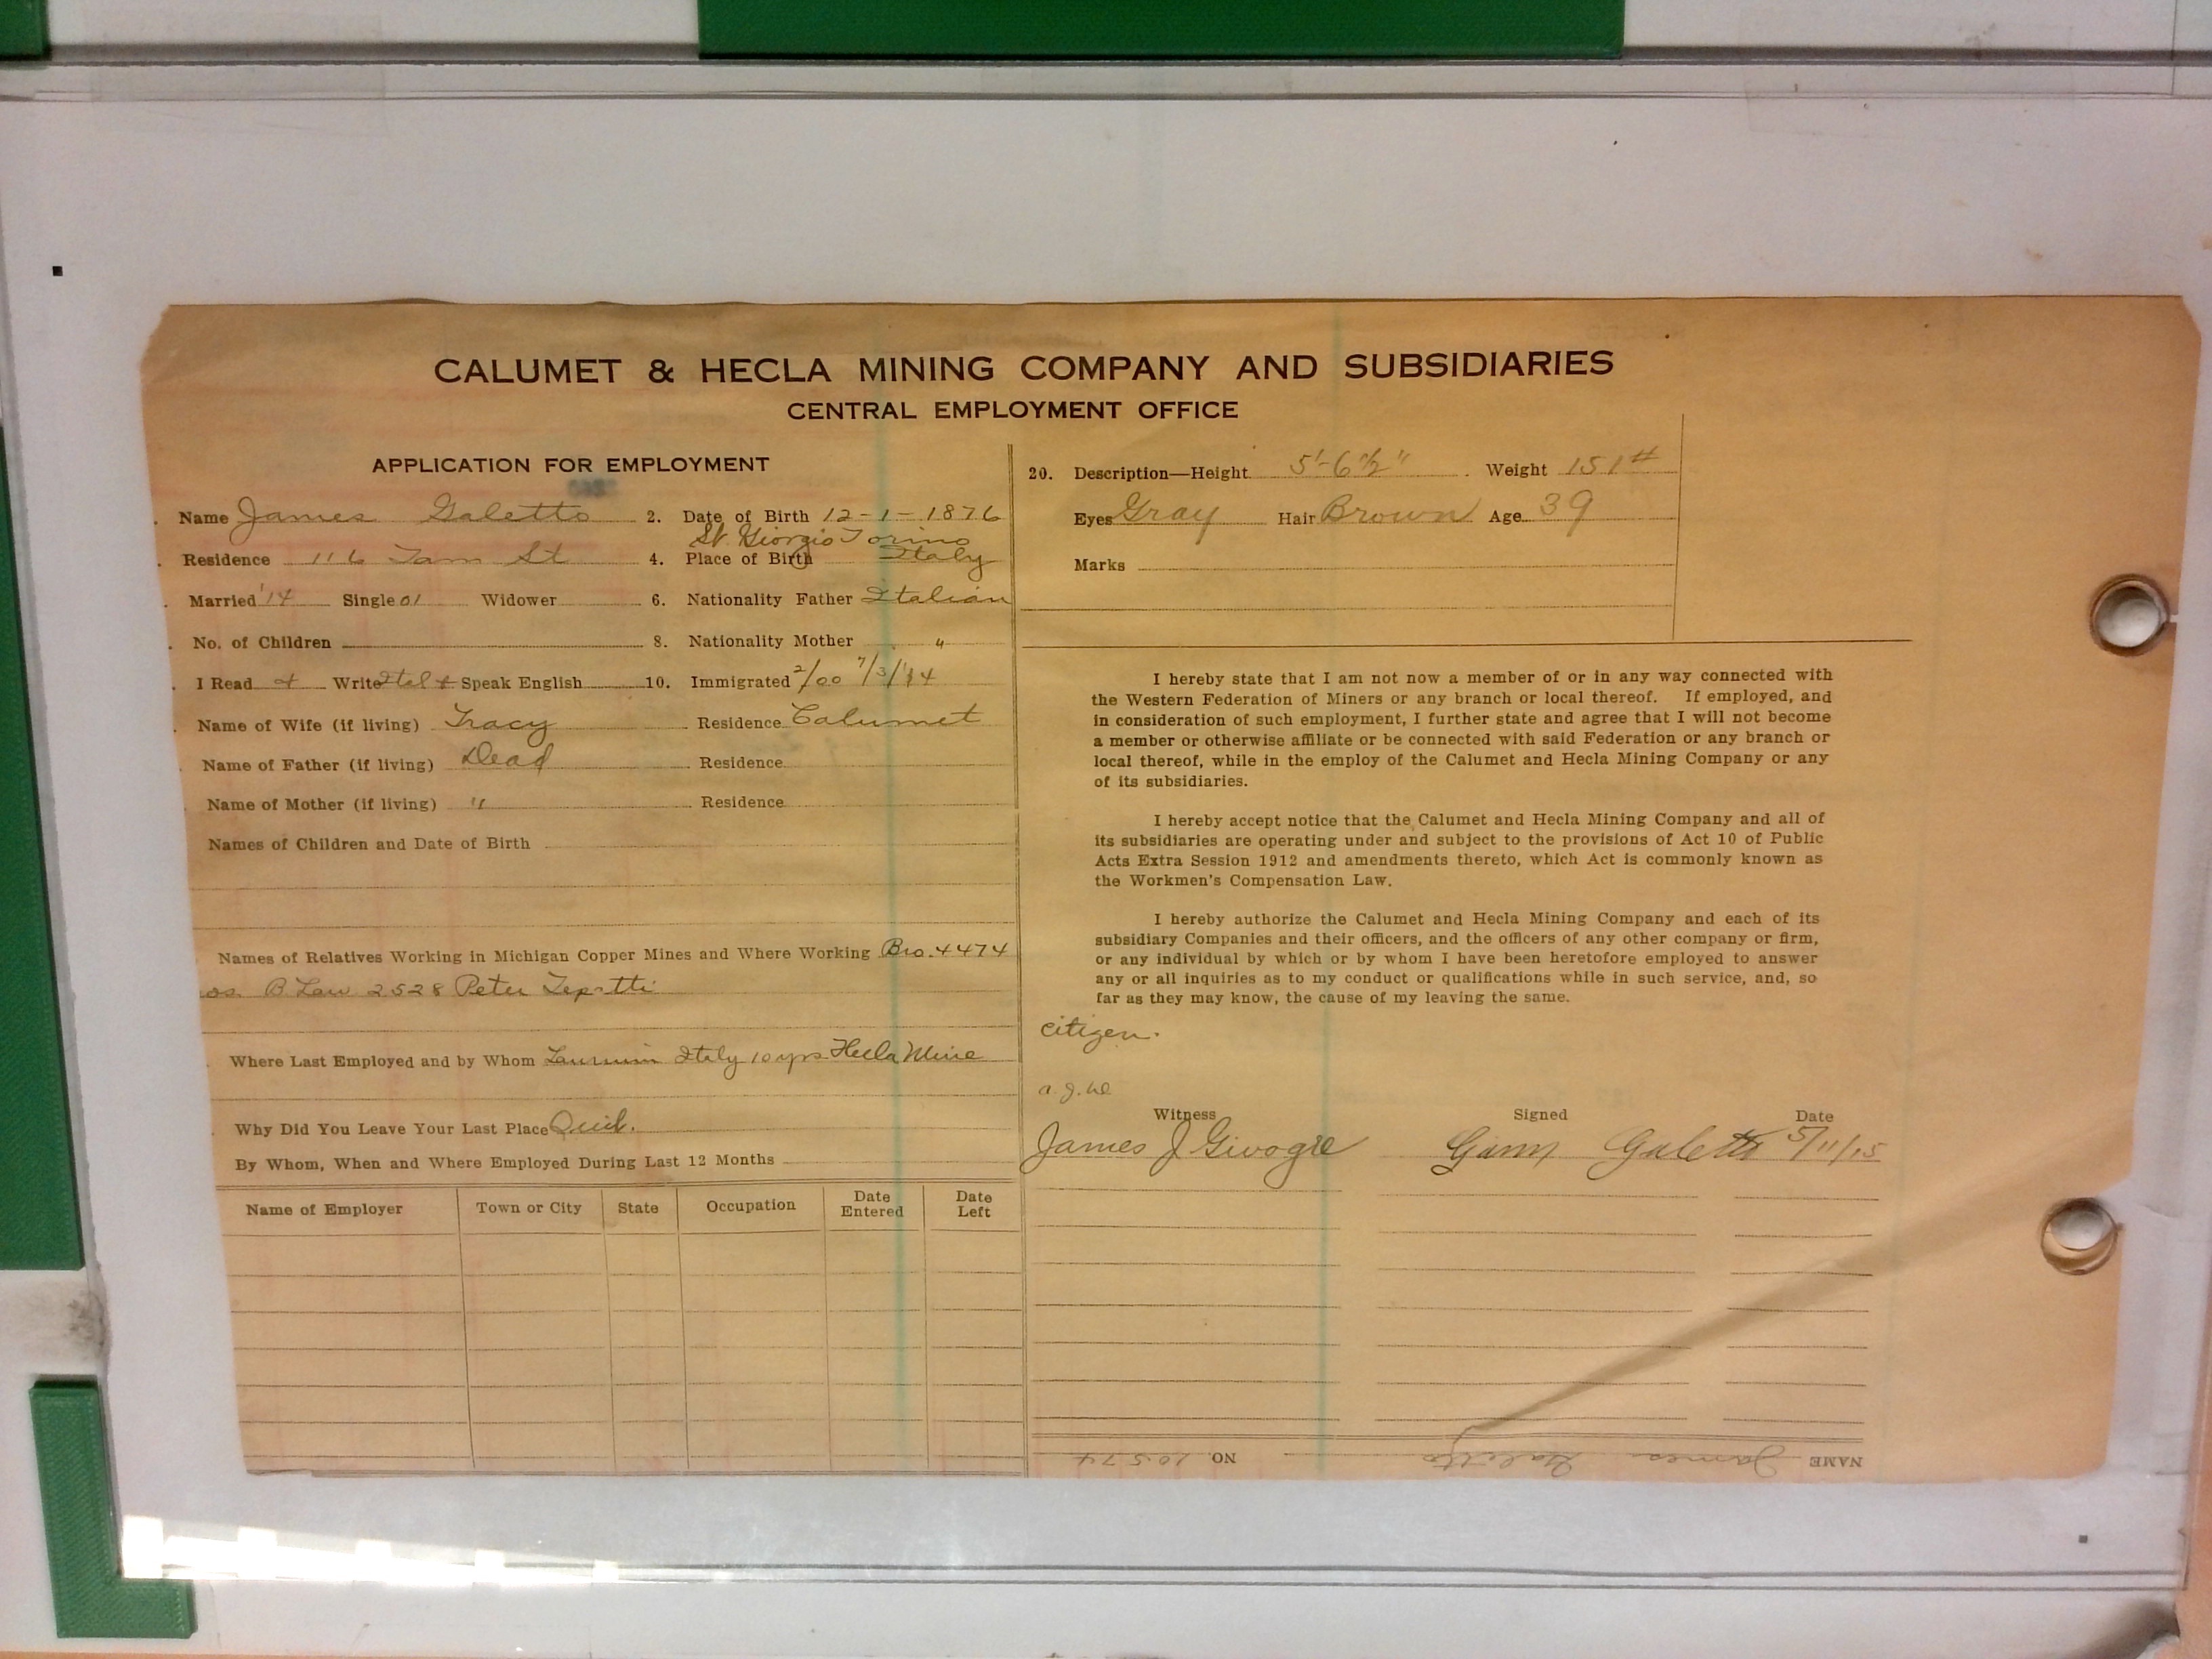 CALUMET & HECLA MINING COMPANY AND SUBSIDIARIES
CENTRAL EMPLOYMENT OFFICE
APPLICATION FOR EMPLOYMENT
Name James Galetto 2. Date of Birth 12-1-1876
St. Giorgio Torino
Residence 116 Tam St 4. Place of Birth Italy
Married '14 Single 01 Widower 6. Nationality Father Italian
No. of Children 8. Nationality Mother "
I Read + Write Ital + Speak English 10. Immigrated 2/00 7/3/'14
Name of Wife (if living) Tracy Residence Calumet
Name of Father (if living) Dead Residence
Name of Mother (if living) " Residence
Names of Children and Date of Birth
Names of Relatives Working in Michigan Copper Mines and Where Working Bro. 4474
B Law 2528 Peter
Where Last Employed and by Whom Italy 10 yrs Hecla Mine
Why Did You Leave Your Last Place Quit.
By Whom, When and Where Employed During Last 12 Months
Name of Employer Town or City State Occupation Date Entered Date Left
20. Description—Height 5'-6 1/2" Weight 151#
Eyes Gray Hair Brown Age 39
Marks
I hereby state that I am not now a member of or in any way connected with
the Western Federation of Miners or any branch or local thereof. If employed, and
in consideration of such employment, I further state and agree that I will not become
a member or otherwise affiliate or be connected with said Federation or any branch or
local thereof, while in the employ of the Calumet and Hecla Mining Company or any
of its subsidiaries.
I hereby accept notice that the Calumet and Hecla Mining Company and all of
its subsidiaries are operating under and subject to the provisions of Act 10 of Public
Acts Extra Session 1912 and amendments thereto, which Act is commonly known as
the Workmen's Compensation Law.
I hereby authorize the Calumet and Hecla Mining Company and each of its
subsidiary Companies and their officers, and the officers of any other company or firm,
or any individual by which or by whom I have been heretofore employed to answer
any or all inquiries as to my conduct or qualifications while in such service, and, so
far as they may know, the cause of my leaving the same.
citizen.
Witness Signed Date
James J Givogre Galetto 5/11/15
NAME James Galetto NO. 10574